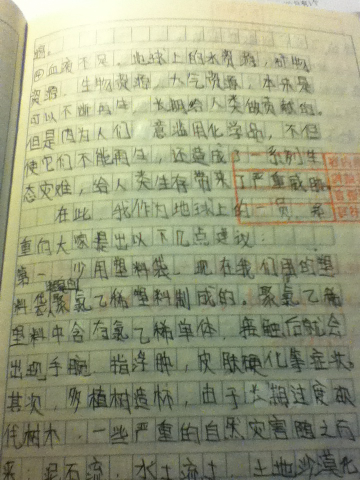 源。
因此很不足。地球上的水资源，矿物
资源，生物资源，大气资源，本来是
可以不断再生，长期给人类做贡献的。
但是因为人们 意滥用化学品，不但
使它们不能再生，还造成了一系列生
态灾难，给人类生存带来了严重威胁。
在此，我作为地球上的一员，郑
重向大家提出以下几点建议：
第一，少用塑料袋。现在我们用的塑
料袋聚氯乙稀塑料制成的。聚氯乙稀
塑料中含有氯乙稀单体，接触后就会
出现手腕，指浮肿，皮肤硬化等症状。
其次，多植树造林，由于长期过度砍
伐树木，一些严重的自然灾害随之而
来，泥石流，水土流土，土地沙漠化